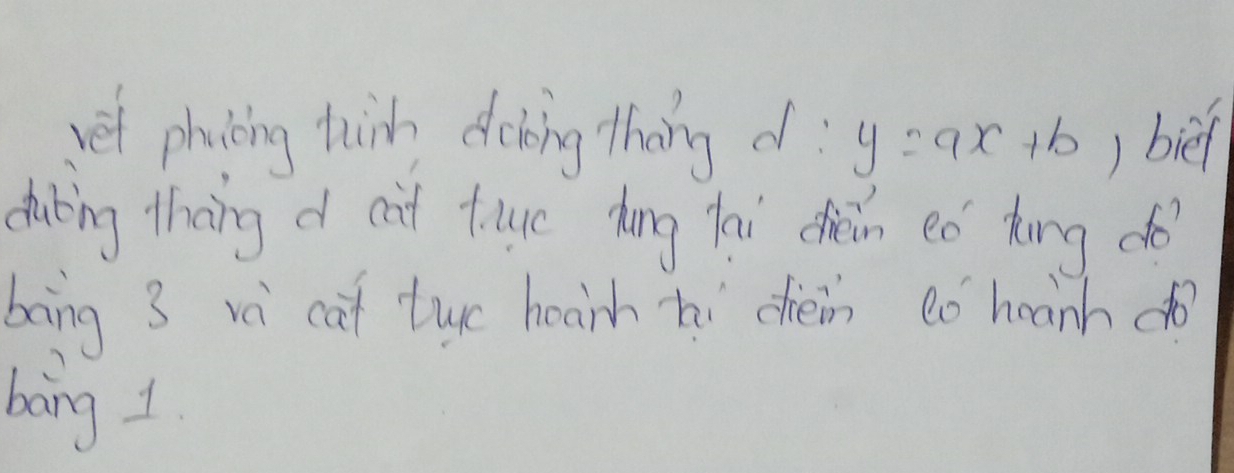 viết phương trình đường thẳng d : y = ax + b , biết
đường thẳng d cắt trục tung tại điểm có tung độ
bằng 3 và cắt trục hoành tại điểm có hoành độ
bằng 1.